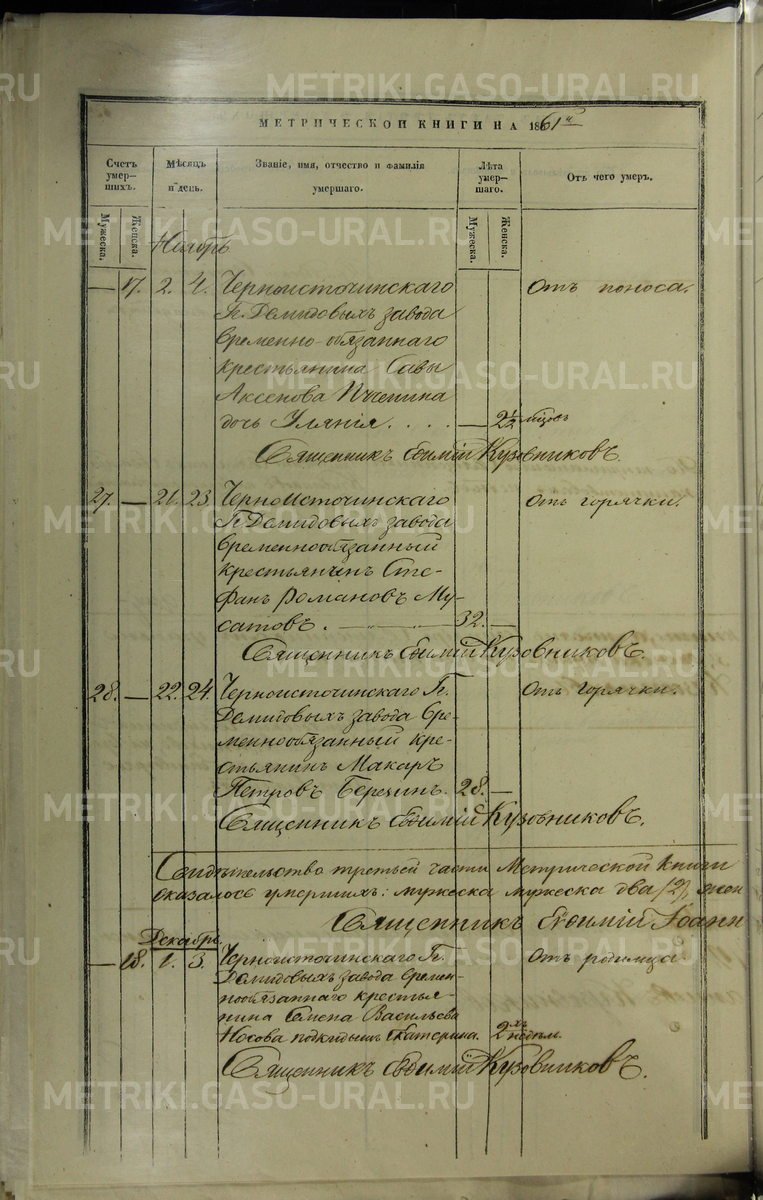 METRIKI.GASO-URAL.RU
МЕТРИЧЕСКОЙ КНИГИ НА 1861й
Счетъ умершихъ.
Мужеска.
Женска.
Мѣсяцъ и день.
Званіе, имя, отчество и фамилія умершаго.
Лѣта умершаго.
Мужеска.
Женска.
Отъ чего умеръ.
Ноябрь
— 17. 2. 4. Черноисточинскаго Отъ поноса.
П. Демидовыхъ завода
временно-обязаннаго
крестьянина Савы
Аксенова
дочь Улянія . . . . — 2½ мцовъ
Священникъ Евѳимій Кузовниковъ.
27. — 21. 23. Черноисточинскаго Отъ горячки.
П. Демидовыхъ завода
временнообязанный
крестьянинъ Сте-
фанъ Романовъ Му-
сатовъ. 32. —
Священникъ Евѳимій Кузовниковъ.
28. — 22. 24. Черноисточинскаго П. Отъ горячки.
Демидовыхъ завода вре-
меннообязанный кре-
стьянинъ Макаръ
Петровъ 28. —
Священникъ Евѳимій Кузовниковъ.
Свидѣтельство третьей части Метрической Книги
оказалось умершихъ: мужеска мужеска два /2/, жен
Священникъ Евѳимій Іоанн
Декабрь.
— 18. 1. 3. Черноисточинскаго П. Отъ родимца.
Демидовыхъ завода времен-
нообязаннаго крестья-
нина Семена Васильева
Носова подкидышъ Екатерина. 2хъ недѣль.
Священникъ Евѳимій Кузовниковъ.